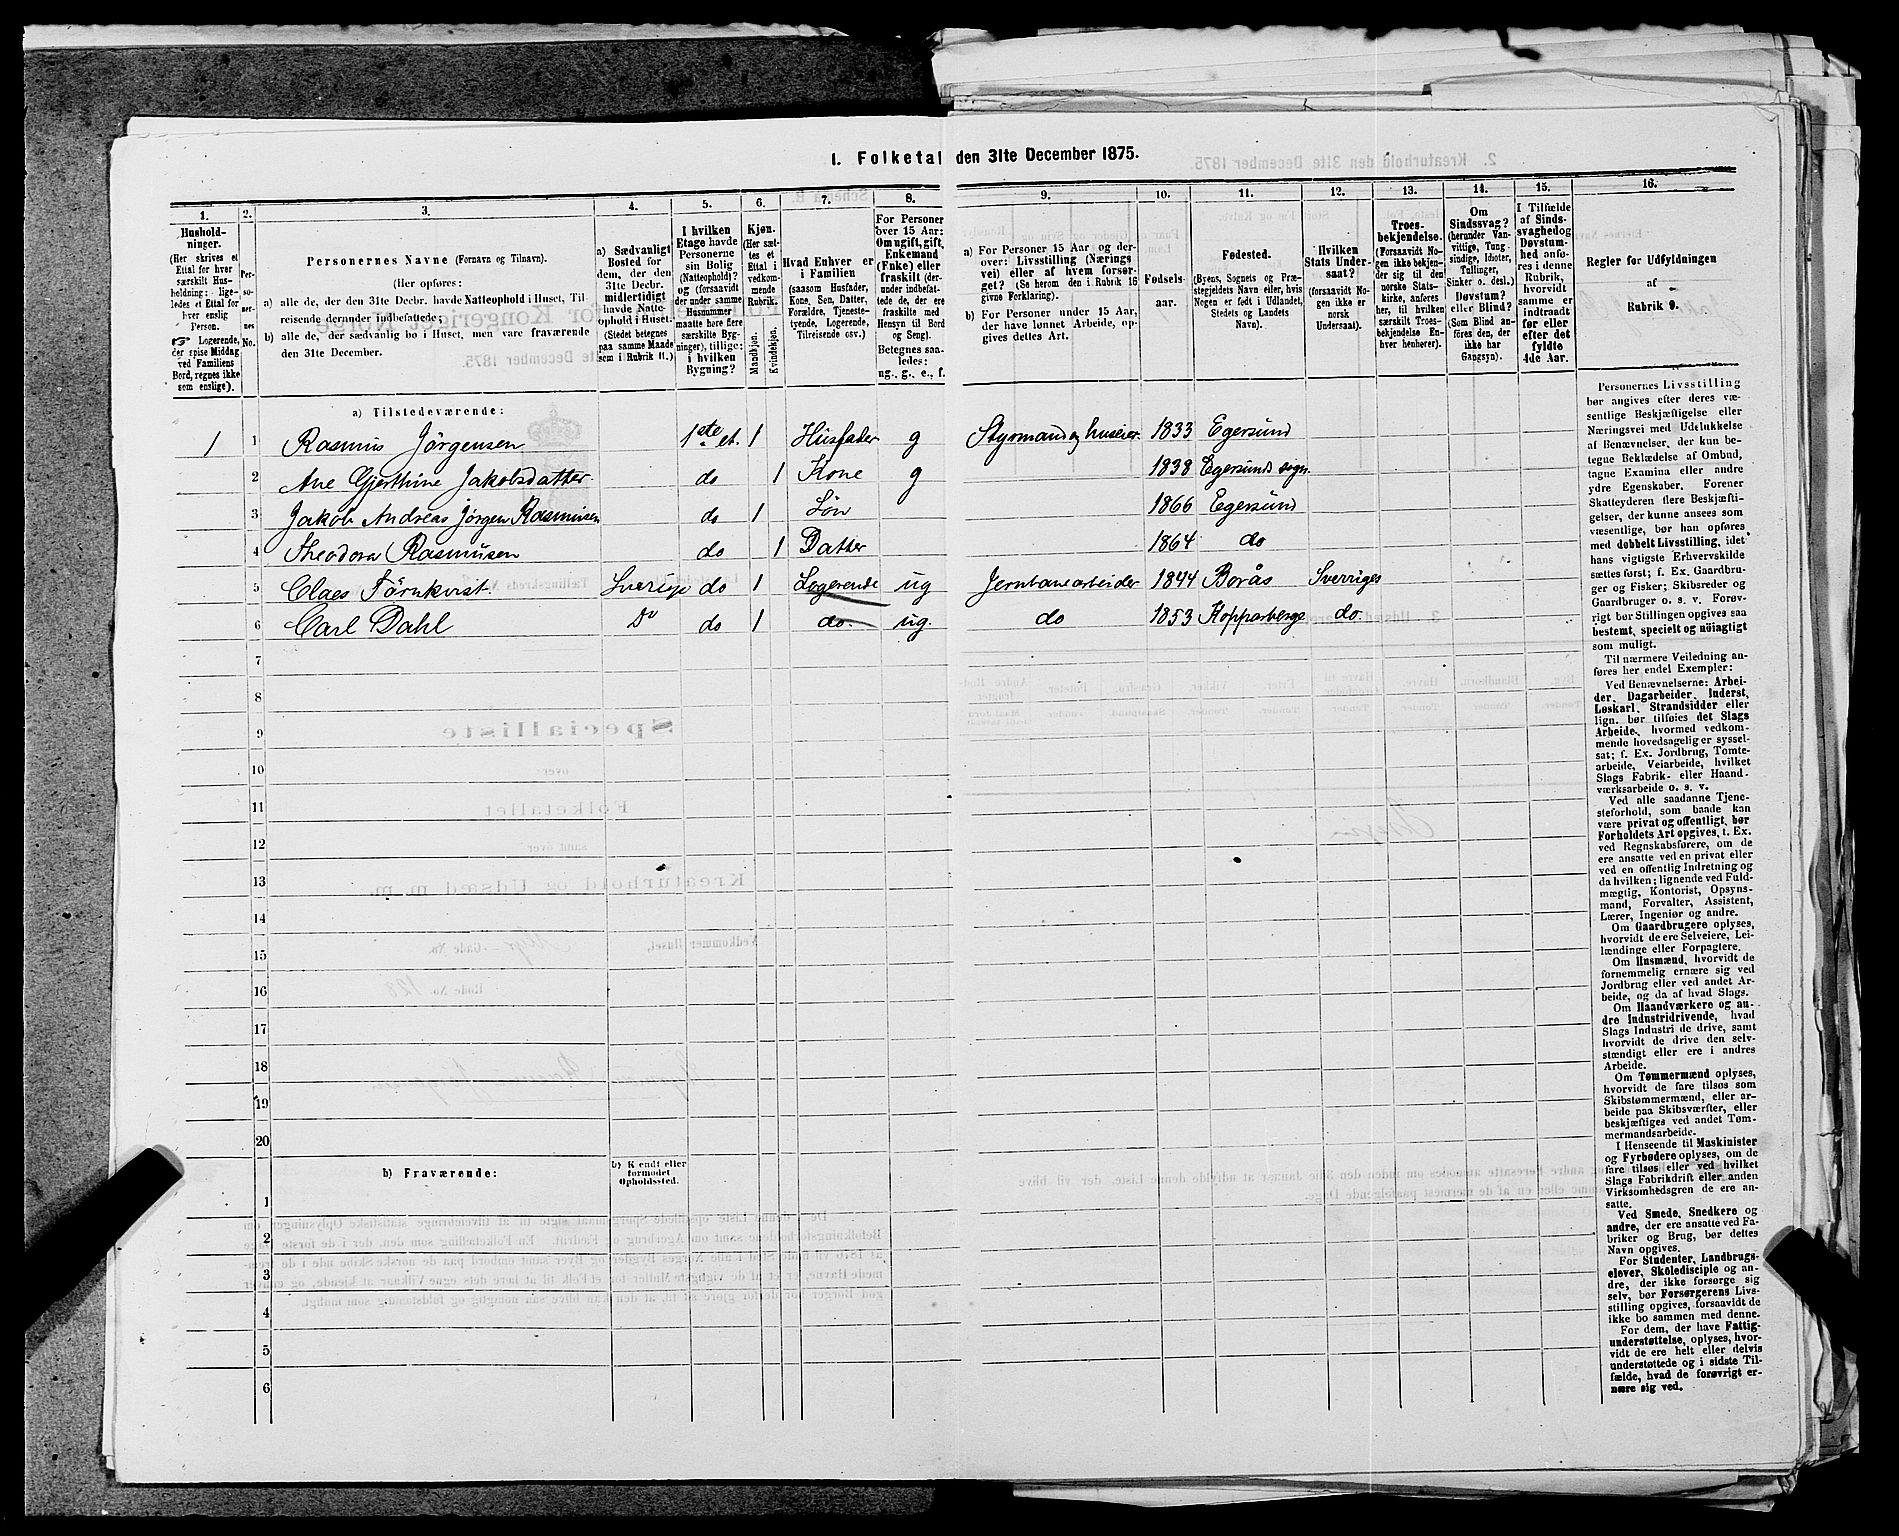 1. Folketal den 31te December 1875.
1. 2. 3. 4. 5. 6. 7. 8. 9. 10. 11. 12. 13. 14. 15. 16.
Hushold-
ninger.
(Her skrives et
Ettal for hver
særskilt Hus-
holdning: lige-
ledes et Ettal for
hver enslig
Person.
Logerende,
der spise Middag
ved Familiens
Bord, regnes ikke
som enslige).
Per-
so-
ner-
nes
No.
Personernes Navne (Fornavn og Tilnavn).
(Her opføres:
a) alle de, der den 31te Decbr. havde Natteophold i Huset, Til-
reisende derunder indbefattede;
b) alle de, der sædvanlig bo i Huset, men vare fraværende
den 31te December.
a) Sædvanligt
Bosted for
dem, der den
31te Decbr.
midlertidigt
havde Natte-
ophold i Huset.
(Stedet betegnes
paa samme Maade
som i Rubrik 11.)
I hvilken
Etage havde
Personerne
sin Bolig
(Natteophold)?
og (forsaavidt
der under samme
Husnummer
maatte høre flere
særskilte Byg-
ninger), tillige:
i hvilken
Bygning?
Kjøn.
(Her sæt-
tes et
Ettal i
vedkom-
mende
Rubrik.
Mandkjøn.
Kvindekjøn.
Hvad Enhver er
i Familien
(saasom Husfader,
Kone, Søn, Datter,
Forældre, Tjeneste-
tyende, Logerende,
Tilreisende osv.)
For Personer
over 15 Aar:
Om ugift, gift,
Enkemand
(Enke) eller
fraskilt (der-
under indbefat-
tede de, der ere
fraskilte med
Hensyn til Bord
og Seng).
Betegnes saa-
ledes:
ug., g., e., f.
a) For Personer 15 Aar og der-
over: Livsstilling (Nærings
vei) eller af hvem forsør-
get? (Se herom den i Rubrik 16
givne Forklaring).
b) For Personer under 15 Aar,
der have lønnet Arbeide, op-
gives dettes Art.
Fødsels-
aar.
Fødested.
(Byens, Sognets og Præ-
stegjeldets Navn eller, hvis
Nogen er født i Udlandet,
Stedets og Landets
Navn).
Hvilken
Stats Under-
saat?
(forsaavidt No-
gen ikke er
norsk
Undersaat).
Troes-
bekjendelse.
(Forsaavidt No-
gen ikke bekjen-
der sig til den
norske Stats-
kirke, anføres
her, til hvilken
særskilt Troes-
bekjendelse En-
hver henhører).
Om
Sindssvag?
(herunder Van-
vittige, Tung-
sindige, Idioter,
Tullinger,
Sinker o. desl.)
Døvstum?
eller Blind?
(Som Blind an-
føres den, der
ikke har
Gangsyn).
I Tilfælde
af Sinds-
svaghed og
Døvstum-
hed anfø-
res i denne
Rubrik,
hvorvidt
samme er
indtraadt
før eller
efter det
fyldte
4de Aar.
Regler for Udfyldningen
af
Rubrik 9.
a) Tilstedeværende:
1 1 Rasmus Jörgensen 1ste et. 1 Husfader g Styrmand og huseier. 1833 Egersund
2 Ane Gjerthine Jakobsdatter do 1 Kone g 1838 Egersunds sogn.
3 Jakob Andreas Jörgen Rasmusen do 1 Sön 1866 Egersund
4 Theodora Rasmusen do 1 Datter 1864 do
5 Claes Törnkvist Sverige do 1 Logerende ug Jernbanearbeider 1844 Borås Sverriges
6 Carl Dahl Do do 1 do. ug. do 1853 Kopparberge do.
7
8
9
10
11
12
13
14
15
16
17
18
19
20
b) Fraværende:
b) Kjendt eller
formodet
Opholdssted.
1
2
3
4
5
6
Personernes Livsstilling
bør angives efter deres væ-
sentlige Beskjæftigelse eller
Næringsvei med Udelukkelse
af Benævnelser, der kun be-
tegne Beklædelse af Ombud,
tagne Examina eller andre
ydre Egenskaber. Forener
Skatteyderen flere Beskjæfti-
gelser, der kunne ansees som
væsentlige, bør han opføres
med dobbelt Livsstilling, idet
hans vigtigste Erhvervskilde
sættes først; f. Ex. Gaardbru-
ger og Fisker; Skibsreder og
Gaardbruger o. s. v. Forøv-
rigt bør Stillingen opgives saa
bestemt, specielt og nöiagtigt
som muligt.
Til nærmere Veiledning an-
føres her endel Exempler:
Ved Benævnelserne: Arbei-
der, Dagarbeider, Inderst,
Løskarl, Strandsidder eller
lign. bør tilføies det Slags
Arbeide, hvormed vedkom-
mende hovedsagelig er syssel-
sat; f. Ex. Jordbrug, Tomte-
arbeide, Veiarbeide, hvilket
Slags Fabrik- eller Haand-
værksarbeide o. s. v.
Ved alle saadanne Tjene-
steforhold, som baade kan
være privat og offentligt, bør
Forholdets Art opgives, t. Ex.
ved Regnskabsførere, om de
ere ansatte ved en privat eller
ved en offentlig Indretning og
da hvilken; lignende ved Fuld-
mægtig, Kontorist, Opsyns-
mand, Forvalter, Assistent,
Lærer, Ingeniør og andre.
Om Gaardbrugere oplyses,
hvorvidt de ere Selveiere, Lei-
lændinge eller Forpagtere.
Om Husmænd, hvorvidt de
fornemmelig ernære sig ved
Jordbrug eller ved andet Ar-
beide, og da af hvad Slags.
Om Haandværkere og an-
dre Industridrivende, hvad
Slags Industri de drive, samt
hvorvidt de drive den selv-
stændigt eller ere i andres
Arbeide.
Om Tømmermænd oplyses,
hvorvidt de fare tilsøs som
Skibstømmermænd, eller ar-
beide paa Skibsværfter, eller
beskjæftiges ved andet Tøm-
mermandsarbeide.
I Henseende til Maskinister
og Fyrbødere oplyses, om de
fare tilsøs eller ved hvilket
Slags Fabrikdrift eller anden
Virksomhedsgren de ere an-
satte.
Ved Smede, Snedkere og
andre, der ere ansatte ved Fa-
briker og Brug, bør dettes
Navn opgives.
For Studenter, Landbrugs-
elever, Skoledisciple og an-
dre, der ikke forsørge sig
selv, bør Forsørgerens Livs-
stilling opgives, forsaavidt de
ikke bo sammen med denne.
For dem, der have Fattig-
understøttelse, oplyses, hvor-
vidt de ere helt eller delvis
understøttede og i sidste Til-
fælde, hvad de forøvrigt er-
nære sig ved.